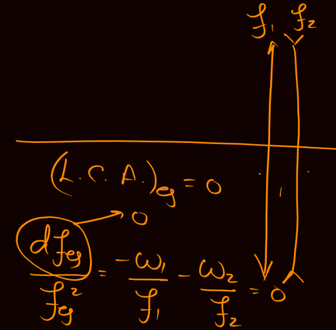 f₁ f₂
(L.C.A.)eq = 0
df_eq → 0
df_eq / f²_eq = -ω₁/f₁ - ω₂/f₂ = 0